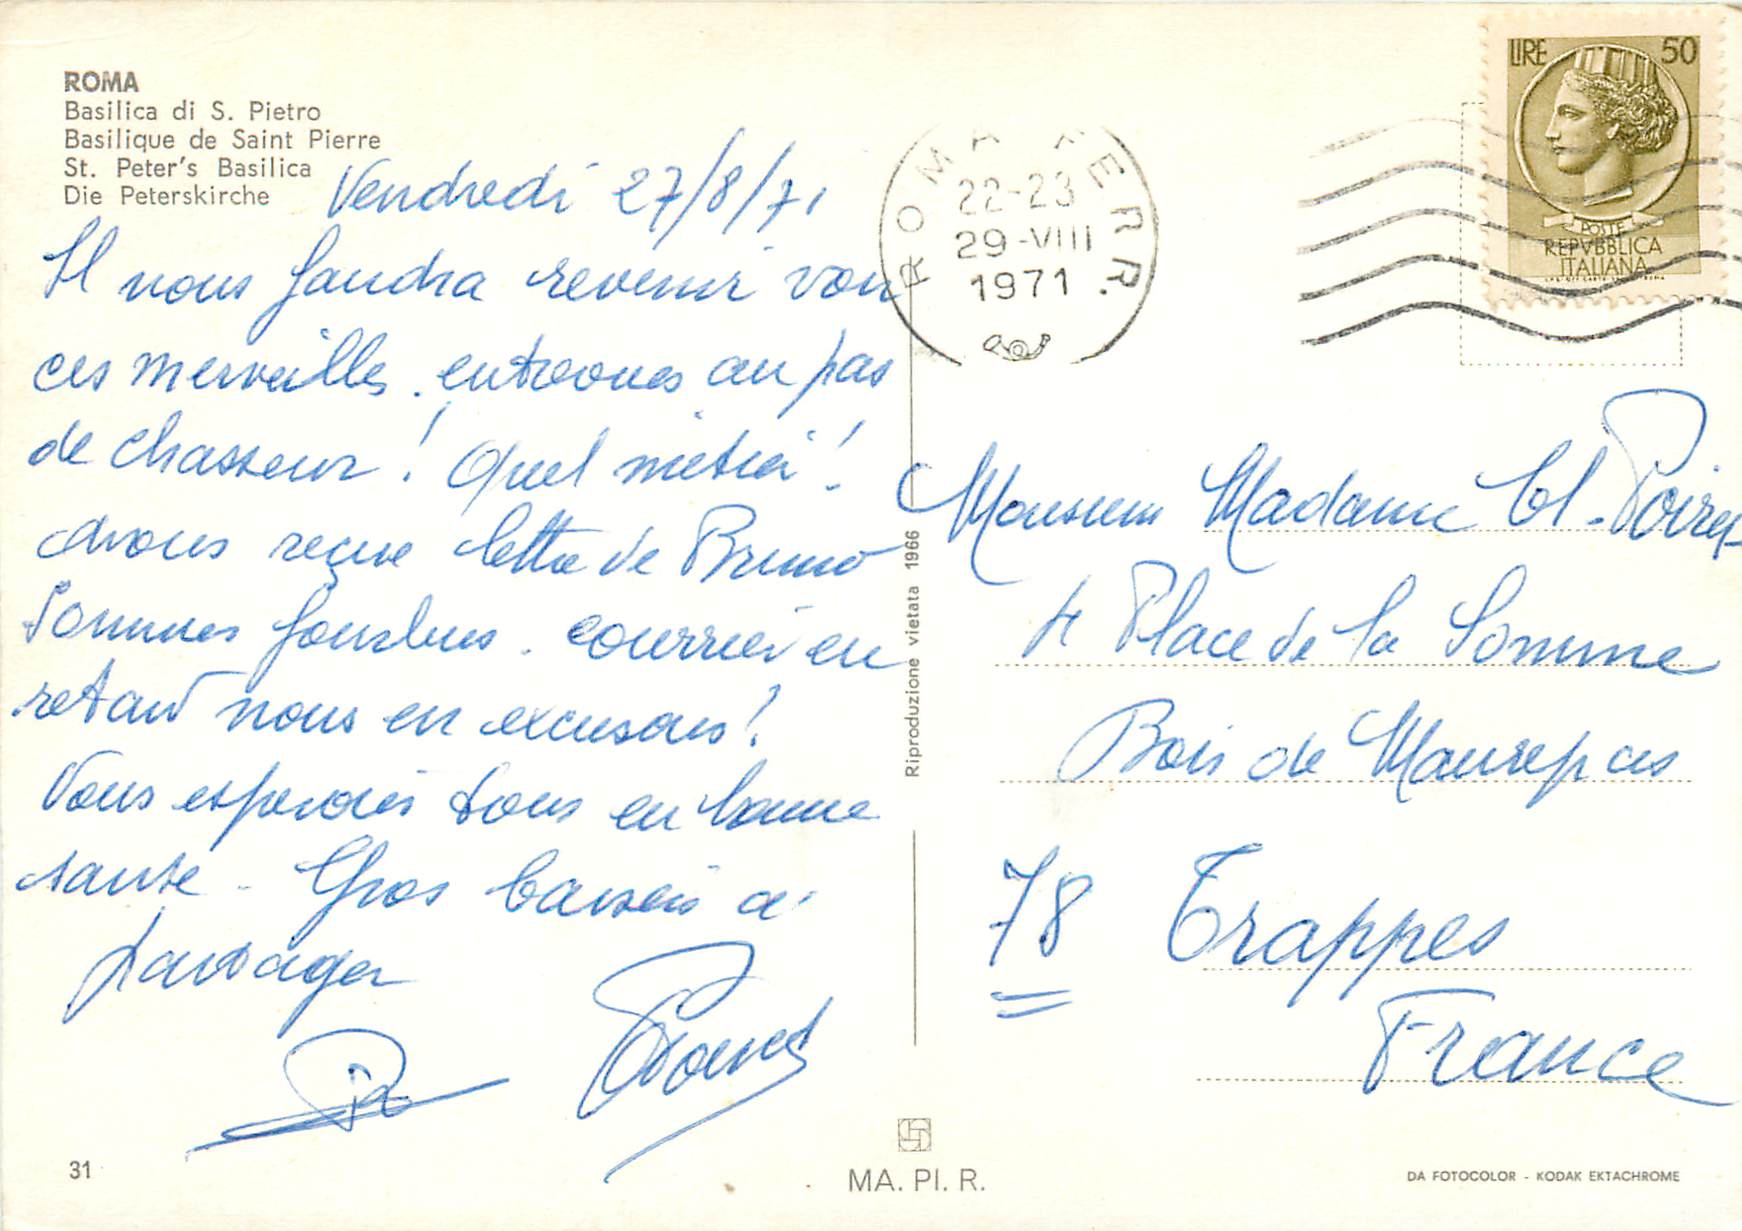 ROMA
Basilica di S. Pietro
Basilique de Saint Pierre
St. Peter's Basilica
Die Peterskirche
Vendredi 27/8/71
Il nous faudra revenir voir
ces merveilles. entrevues au pas
de chasseur! Quel métier!
Avons reçue lettre de Bruno
Sommes fourbus. courrier en
retard nous en excusons!
Vous espérons tous en bonne
santé - Gros baisers à
partager
ROMA FERR.
22-23
29-VIII
1971
LIRE 50
POSTE
REPVBBLICA
ITALIANA
Monsieur Madame Cl. Poirer
4 Place de la Somme
Bois de Maurepas
78 Trappes
France
Riproduzione vietata 1966
31
MA. PI. R.
DA FOTOCOLOR - KODAK EKTACHROME